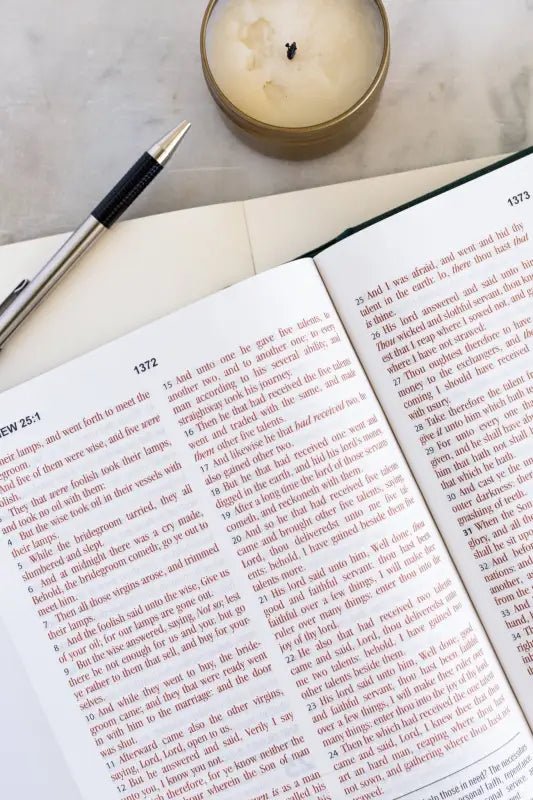 EW 25:1
1372
their lamps, and went forth to meet the
egroom.
nd five of them were wise, and five were
olish.
They that were foolish took their lamps,
and took no oil with them:
4 But the wise took oil in their vessels with
their lamps.
5 While the bridegroom tarried, they all
slumbered and slept.
6 And at midnight there was a cry made,
behold, the bridegroom cometh; go ye out to
meet him.
7 Then all those virgins arose, and trimmed
their lamps.
8 And the foolish said unto the wise, Give us
of your oil; for our lamps are gone out.
9 But the wise answered, saying, Not so; lest
there be not enough for us and you: but go
ye rather to them that sell, and buy for your-
selves.
10 And while they went to buy, the bride-
groom came; and they that were ready went
in with him to the marriage: and the door
was shut.
11 Afterward came also the other virgins,
saying, Lord, Lord, open to us.
12 But he answered and said, Verily I say
unto you, I know you not.
therefore, for ye know neither the
hour wherein the Son of man
is as a man
called his
15 And unto one he gave five talents, to
another two, and to another one; to every
man according to his several ability; and
straightway took his journey.
16 Then he that had received the five talents
went and traded with the same, and made
them other five talents.
17 And likewise he that had received two, he
also gained other two.
18 But he that had received one went and
digged in the earth, and hid his lord's money.
19 After a long time the lord of those servants
cometh, and reckoneth with them.
20 And so he that had received five talents
came and brought other five talents, saying,
Lord, thou deliveredst unto me five tal-
ents: behold, I have gained beside them five
talents more.
21 His lord said unto him, Well done, thou
good and faithful servant: thou hast been
faithful over a few things, I will make thee
ruler over many things: enter thou into the
joy of thy lord.
22 He also that had received two talents
came and said, Lord, thou deliveredst unto
me two talents: behold, I have gained two
other talents beside them.
23 His lord said unto him, Well done, good
and faithful servant; thou hast been faithful
over a few things, I will make thee ruler over
many things: enter thou into the joy of thy lord.
24 Then he which had received the one talent
came and said, Lord, I knew thee that thou
art an hard man, reaping where thou hast
not sown, and gathering where thou hast not
help those in need? The necessities
personal faith, repentance
1373
25 And I was afraid, and went and hid thy
talent in the earth: lo, there thou hast that
is thine.
26 His lord answered and said unto him,
Thou wicked and slothful servant, thou knew-
est that I reap where I sowed not, and g
where I have not strawed:
27 Thou oughtest therefore to have
money to the exchangers, and
coming I should have received
with usury.
28 Take therefore the talent f
give it unto him which hath
29 For unto every one that
given, and he shall have ab
him that hath not shall
that which he hath.
30 And cast ye the un
outer darkness: there
gnashing of teeth.
31 When the Son
glory, and all the
shall he sit upon
32 And before
nations: and
another, a
from the
33 And
hand,
34 Th
righ